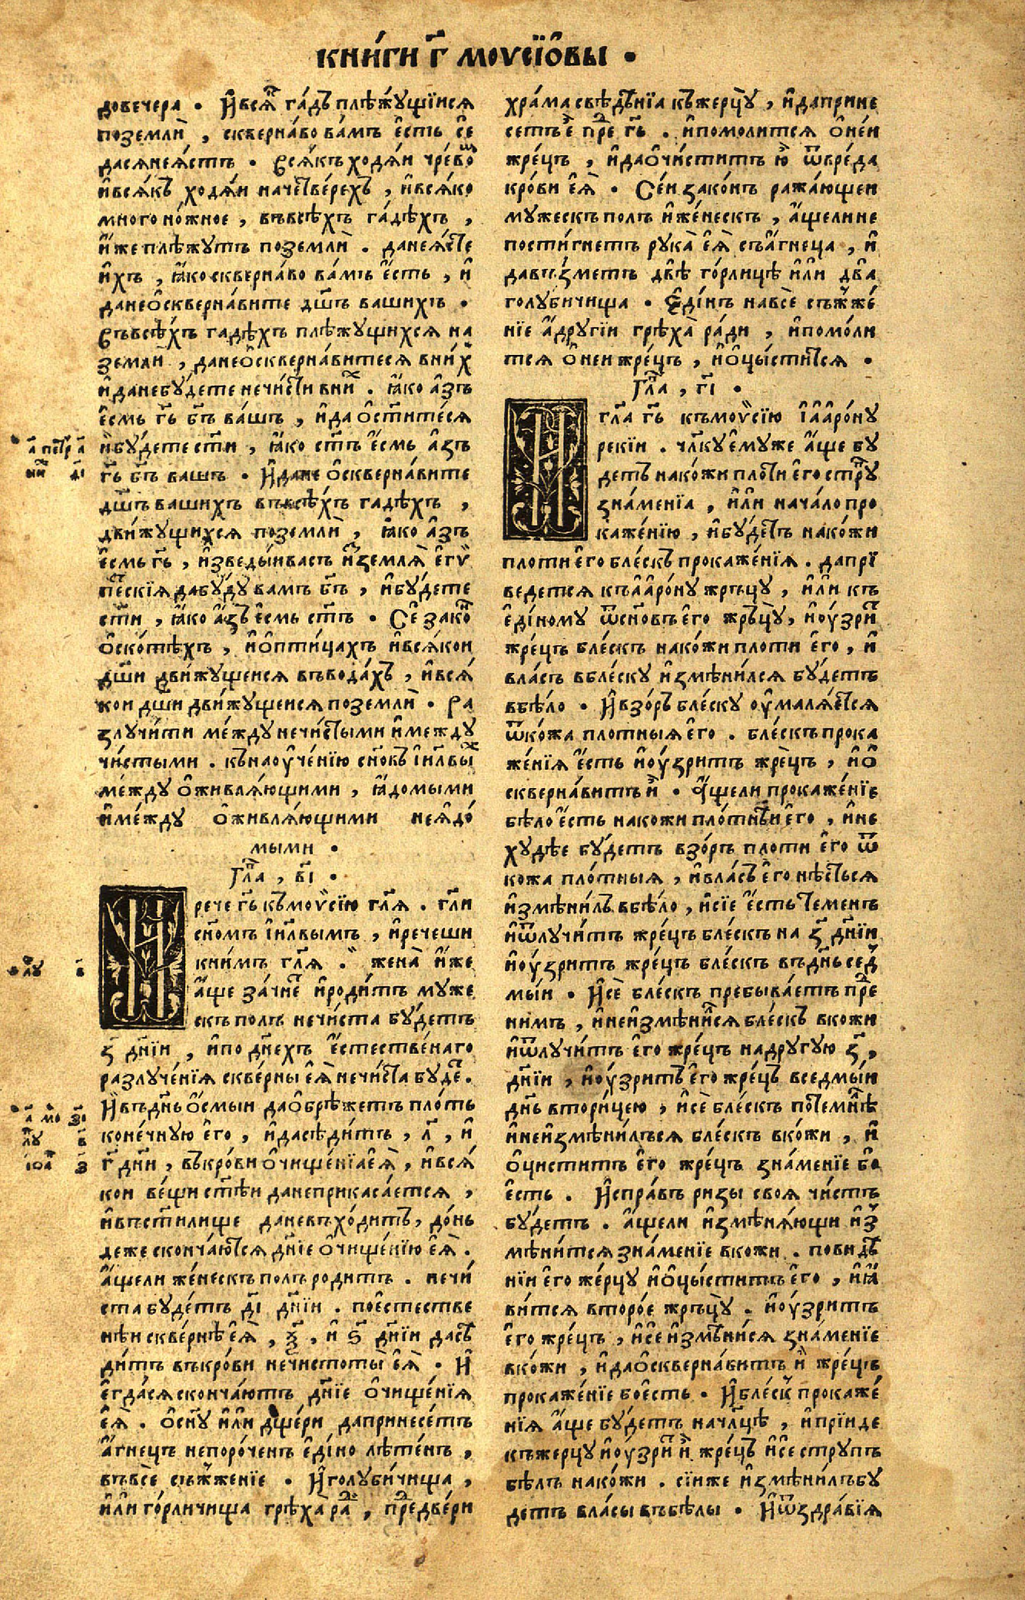 кни́ги г҃ моѵсїѡвы •
довечера • И҆всѧ̑ га́дъ плѣ́жꙋщїисѧ
поземлѝ , сквернавобовамъ є҆сть се
дасѧнеѧ́стъ • Всѧ́къ ходѧ́и чре́во
и҆всѧ́къ ходѧ́и наче́тверехъ , и҆всѧ́ко
много но́жное , въвсѣ́хъ га́дѣхъ ,
и҆́же плѣ́жꙋтъ поземлѝ . данеѧ́сте
и҆́хъ , ꙗ҆́ко сквернаво вамъ є҆́сть , и҆
данеѡ҆сквернавите дш҃ъ вашихъ •
Въвсѣ́хъ гадѣхъ плѣ́жꙋщихсѧ на
землѝ , данеѡ҆сквернавитесѧ вни́х
и҆данебꙋ́дете нечи́сти вни́х . ꙗ҆́ко а҆́зъ
є҆́смь гь҃ бг҃ъ ва́шъ , и҆да ѡ҆ст҃и́тесѧ
и҆бꙋ́дете ст҃и , ꙗ҆́ко ст҃ъ є҆́смь а҆́зъ
гь҃ бг҃ъ вашъ • И҆дане ѡ҆сквернавите
дш҃ъ вашихъ въвсѣ́хъ гадѣхъ ,
дви́жꙋщихсѧ поземлѝ , ꙗ҆́ко а҆́зъ
є҆́смь гь҃ , и҆зведы́и васъ и҆ꙁземлѧ̀ є҆гѵ
пескїѧ дабꙋ́дꙋ вамъ бг҃ъ , и҆бꙋ́дете
ст҃и , ꙗ҆́ко а҆́зъ є҆́смь ст҃ъ • Се́ зако́н
ѡ҆скотѣ́хъ , и҆ѡ҆пти́цахъ и҆всѧ́кои
дш҃и движꙋщеисѧ въвода́хъ , и҆всѧ́
кои дш҃и дви́жꙋщеисѧ поземлѝ • Ра
злꙋчи́ти ме́ждꙋ нечи́стыми и҆междꙋ
чи́стыми . кънаѹ҆че́нїю сн҃овъ і҆и҃лвы́х
ме́ждꙋ ѡ҆живлѧ́ющими , ꙗ҆до́мыми
и҆ме́ждꙋ ѡ҆живлѧ́ющими неꙗ҆до́
мыми •
Гл҃а , в҃і •
И҆рече гь҃ къмоѷсїю гл҃ѧ . гл҃и
сн҃омъ і҆и҃лвымъ , и҆речеши
кни́мъ гл҃ѧ . жена̀ и҆́же
а҆́ще зачне́т и҆роди́тъ мꙋже
скъ полъ нечи́ста бꙋ́детъ
ꙁ҃ дн҃їи , и҆по дн҃е́хъ є҆сте́ственаго
разлꙋче́нїѧ скве́рны є҆ѧ̀ нечи́ста бꙋ́де .
И҆въдн҃ь о҆смыи даѡ҆брѣ́жетъ пло́ть
коне́чнꙋю є҆го̀ , и҆дасѣди́тъ , л҃ , и҆
г҃ дн҃и , въкро́ви ѡ҆чище́нїѧ є҆ѧ̀ , и҆всѧ́
кои ве́щи ст҃ѣи данеприкаса́етсѧ ,
и҆въст҃илище даневъхо́дитъ , до́нь
деже сконча́ютсѧ дн҃їе ѡ҆чище́нїю є҆ѧ̀ .
а҆́щели же́нескъ полъ роди́тъ . нечи́
ста бꙋ́детъ д҃і дн҃їи . поє҆стестве
нѣи скве́рнѣ є҆ѧ̀ , ѯ҃ , и҆ ѕ҃ дн҃їи дасѣ
ди́тъ въкро́ви нечистоты̀ є҆ѧ̀ • И҆
є҆гда́сѧ сконча́ютъ дн҃їе ѡ҆чище́нїѧ
є҆ѧ̀ . ѡ҆сн҃ꙋ и҆́ли дще́ри даприне́сетъ
а҆́гнецъ непоро́ченъ є҆ди́но лѣ́тенъ ,
въвсѐ съжже́нїе • И҆голꙋби́чища ,
и҆́ли го́рличища грѣха̀ рад , предвери
хра́ма свѣдѣ́нїѧ къжерцꙋ̀ , и҆даприне
се́тъ є҆̀ пре́д гь҃ . и҆помо́литсѧ ѡ҆не́и
жре́цъ , и҆даѡ҆чи́ститъ ю҆̀ ѿвре́да
кро́ви є҆ѧ̀ • Се́и зако́нъ ража́ющеи
мꙋжескъ полъ и҆же́нескъ , а҆́щелине
пости́гнетъ рꙋка̀ є҆ѧ̀ съа҆́гнеца , и҆
давъзметъ двѣ̀ го́рлицѣ и҆́ли два̀
голꙋбичища • Е҆ди́нъ навсѐ съжже́
нїе а҆дрꙋгїи грѣха̀ ра́ди , и҆помо́ли
тсѧ ѡ҆не́и жре́цъ , и҆ѡ҆цы́ститсѧ •
Гл҃а , г҃і •
И҆гл҃а гь҃ къмоѷсїю і҆а҆а҆ро́нꙋ
рекі́и . чл҃кꙋ є҆мꙋже а҆́ще бꙋ
детъ накожи пло́ти є҆го стрꙋ́п
зна́менїа , и҆́ли начало про
каже́нїю , и҆бꙋ́детъ нако́жи
плоти є҆го бле́скъ прокаже́нїѧ . даприї
ведетсѧ къа҆а҆ро́нꙋ жръцꙋ̀ , и҆́ли къ
є҆ди́номꙋ ѿсн҃овъ є҆го̀ жръцꙋ̀ , и҆ѹ҆зри́т
жре́цъ бле́скъ нако́жи пло́ти є҆го , и҆
вла́съ вбле́скꙋ и҆змѣни́лсѧ бꙋ́детъ
вбѣло • И҆взо́ръ бле́скꙋ ѹ҆малѧ́етсѧ
ѿко́жа плотны́ѧ є҆го . бле́скъ прока
же́нїѧ є҆́сть и҆ѹ҆зритъ жре́цъ , и҆ѡ҆
сквернави́тъ и҆̀ • А҆́щели прокаже́нїе
бѣло є҆сть накожи пло́тнѣи є҆го , и҆не
хꙋдѣе бꙋ́детъ взо́ръ пло́ти є҆го ѿ
кожа пло́тныѧ , и҆вла́съ є҆го нѣ́стьсѧ
и҆змѣни́лъ вбѣло , и҆сїе є҆́сть те́менъ
и҆ѿлꙋчи́тъ жре́цъ бле́скъ на ꙁ҃ дн҃їи
и҆ѹ҆зри́тъ жре́цъ бле́скъ въдн҃ь сед
мы́и • И҆сѐ бле́скъ пребыва́етъ пред
нимъ , и҆неи҆змѣни́лсѧ бле́скъ вкожи
и҆ѿлꙋчи́тъ є҆го жре́цъ надрꙋгꙋю ꙁ҃ ,
дн҃їи , и҆ѹ҆зри́тъ є҆го жре́цъ вседмы́и
дн҃ь вторицею , и҆сѐ бле́скъ поте́мнѣ
и҆неи҆змѣни́лъсѧ бле́скъ вко́жи , и҆
ѡ҆чи́ститъ є҆го жре́цъ зна́менїе бо
є҆сть . И҆спра́въ ризы своѧ̀ чи́стъ
бꙋ́детъ . а҆́щели и҆змѣнѧ́ющи и҆з
мѣни́тсѧ зна́менїе вкожи . повидѣ́
нїи є҆го же́рцꙋ и҆ѡ҆цы́ститъ є҆го , и҆ꙗ҆
витсѧ второ́е жръцꙋ̀ . и҆ѹ҆зритъ
є҆го жре́цъ , и҆се и҆змѣни́сѧ зна́менїе
вкожи , и҆даѡ҆сквернави́тъ и҆̀ жре́цъ
прокаже́нїе боє҆сть • И҆бле́скъ прокаже́
нїѧ а҆́ще бꙋ́детъ начл҃цѣ , и҆прїиде
къжерцꙋ и҆ѹ҆зри́т и҆̀ жре́цъ и҆се стрꙋпъ
бѣлъ накожи . сїиже и҆змѣни́лъ бꙋ
детъ власы въбѣлы • И҆ѿздра́вїѧ